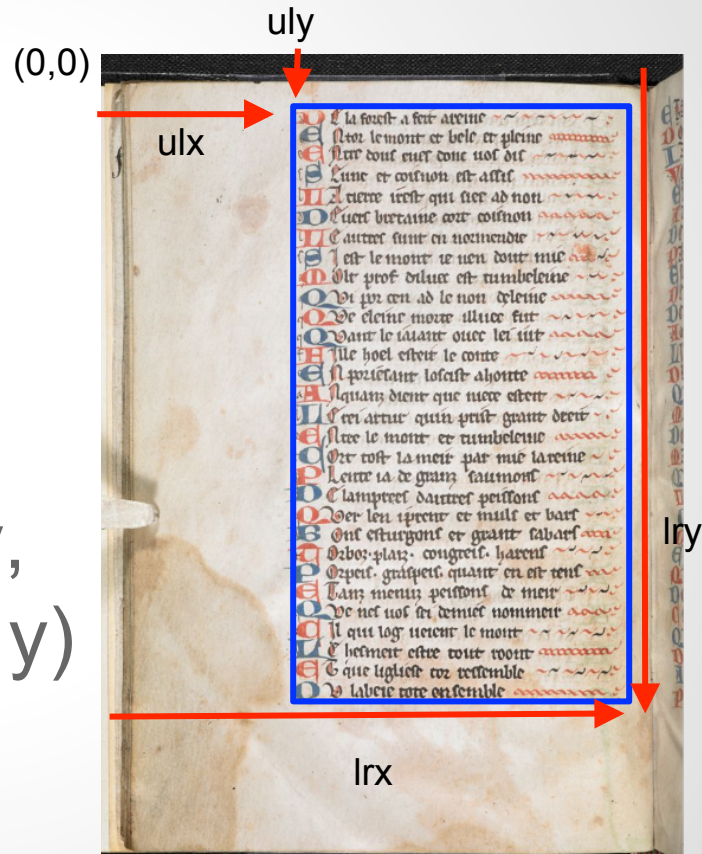 uly
(0,0)
ulx
E la forest a feit areine
E Ntor le mont et bele et pleine
E Ntre dous eues donc uos dis
S Elune et coisnon est assis
L A tierce icest qui siee ad non
D Euers bretaine cort coisnon
L Es autres sunt en normendie
S I est le mont ie uen dout mie
M Olt prof diluec est tumbeleine
Q Vi por cen ad le non deleine
Q Ve eleine morte illuec fut
Q Vant le iaiant ouec lei iut
F Ille hoel esteit le conte
E N
A Nquanz dient que niece esteit
L E rei artur quin prist grant dreit
E Ntre le mont et tumbeleine
C Ort tost la meir par mie lareine
P Lente ia de granz saumons
D E lamprees dautres peissons
et muls et bars
B Ons esturgons et grant
T Orboz plaiz congreis harens
P Orpeis graspeis quant en est tens
E T anz menuz peissons de meir
Q Ve nes uos sei demies nommeir
C Il qui log ueient le mont
L E hesmeit estre tout roont
E T que ligliese tor ressemble
O V labeie tote ensemble
,
y)
lry
lrx